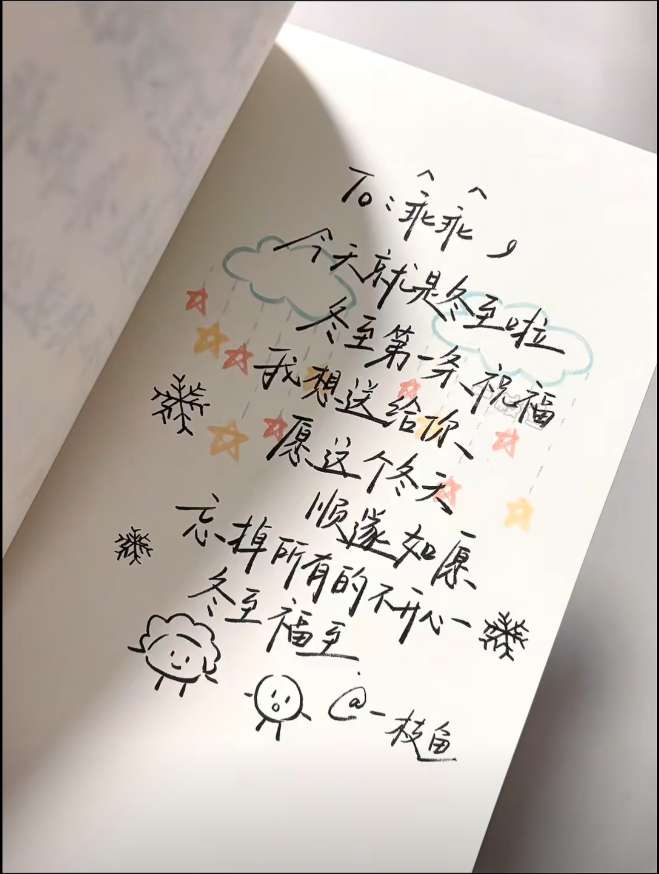 To:乖乖，
今天就是冬至啦
冬至第一条祝福
我想送给你
愿这个冬天
顺遂如愿
忘掉所有的不开心一
冬至福至
@一枝鱼